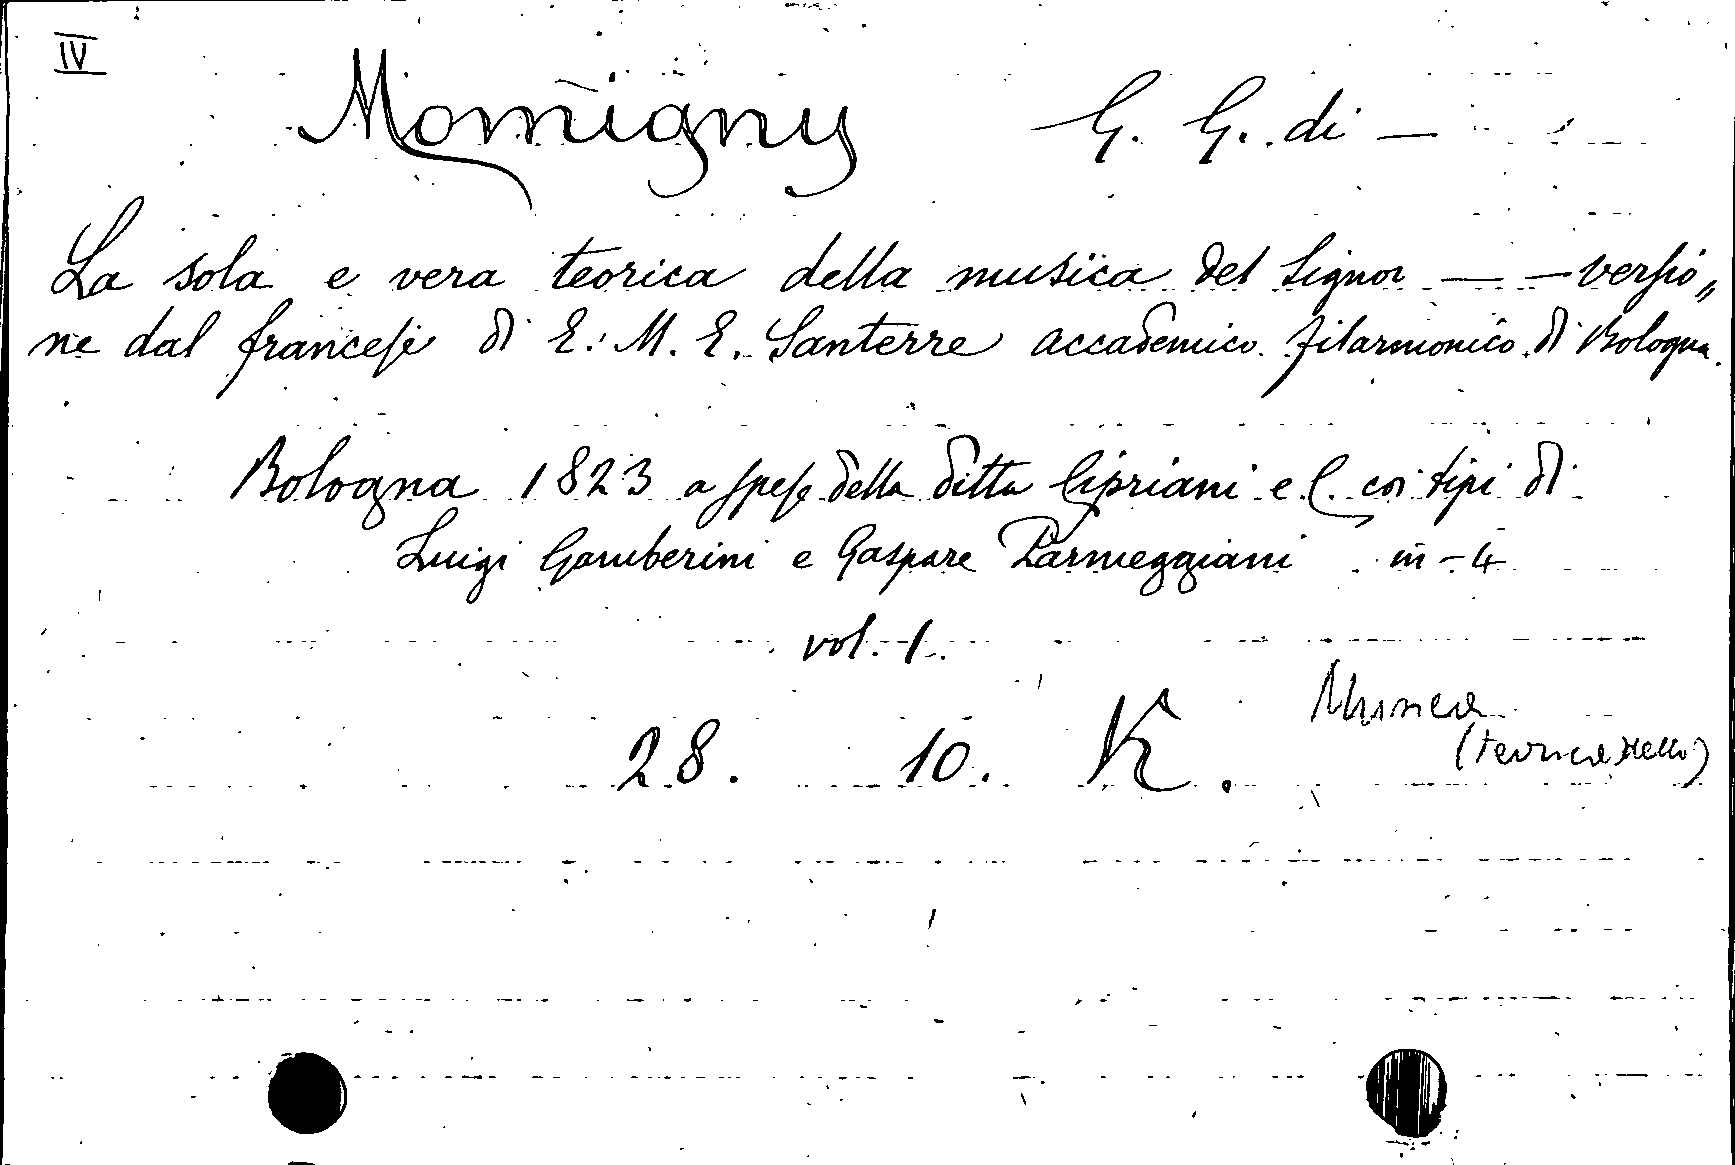 IV
Momigny G. G. di —
La sola e vera teorica della musica del Signor — — versio„
ne dal francese di E. M. E. Santerre accademico filarmonico di Bologna.
Bologna 1823 a spese della ditta Cipriani e C. coi tipi di
Luigi Gamberini e Gaspare Parmeggiani in-4
vol. 1.
28. 10. K.
Musica
(teorica della)